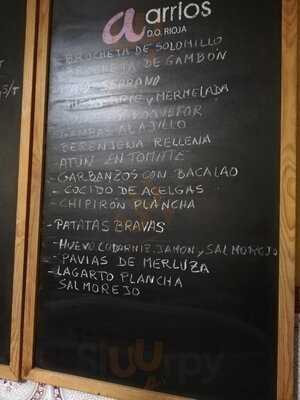 a arrios
D.O. RIOJA
- BROCHETA DE SOLOMILLO
BROCHETA DE GAMBÓN
SERRANO
Y MERMELADA
Y ROQUEFOR
GAMBAS AL AJILLO
BERENJENA RELLENA
ATÚN EN TOMATE
- GARBANZOS CON BACALAO
- COCIDO DE ACELGAS
- CHIPIRÓN PLANCHA
- PATATAS BRAVAS
- HUEVO CODORNIZ, JAMON Y SALMOREJO
- PAVIAS DE MERLUZA
- LAGARTO PLANCHA
SALMOREJO
Sluurpy